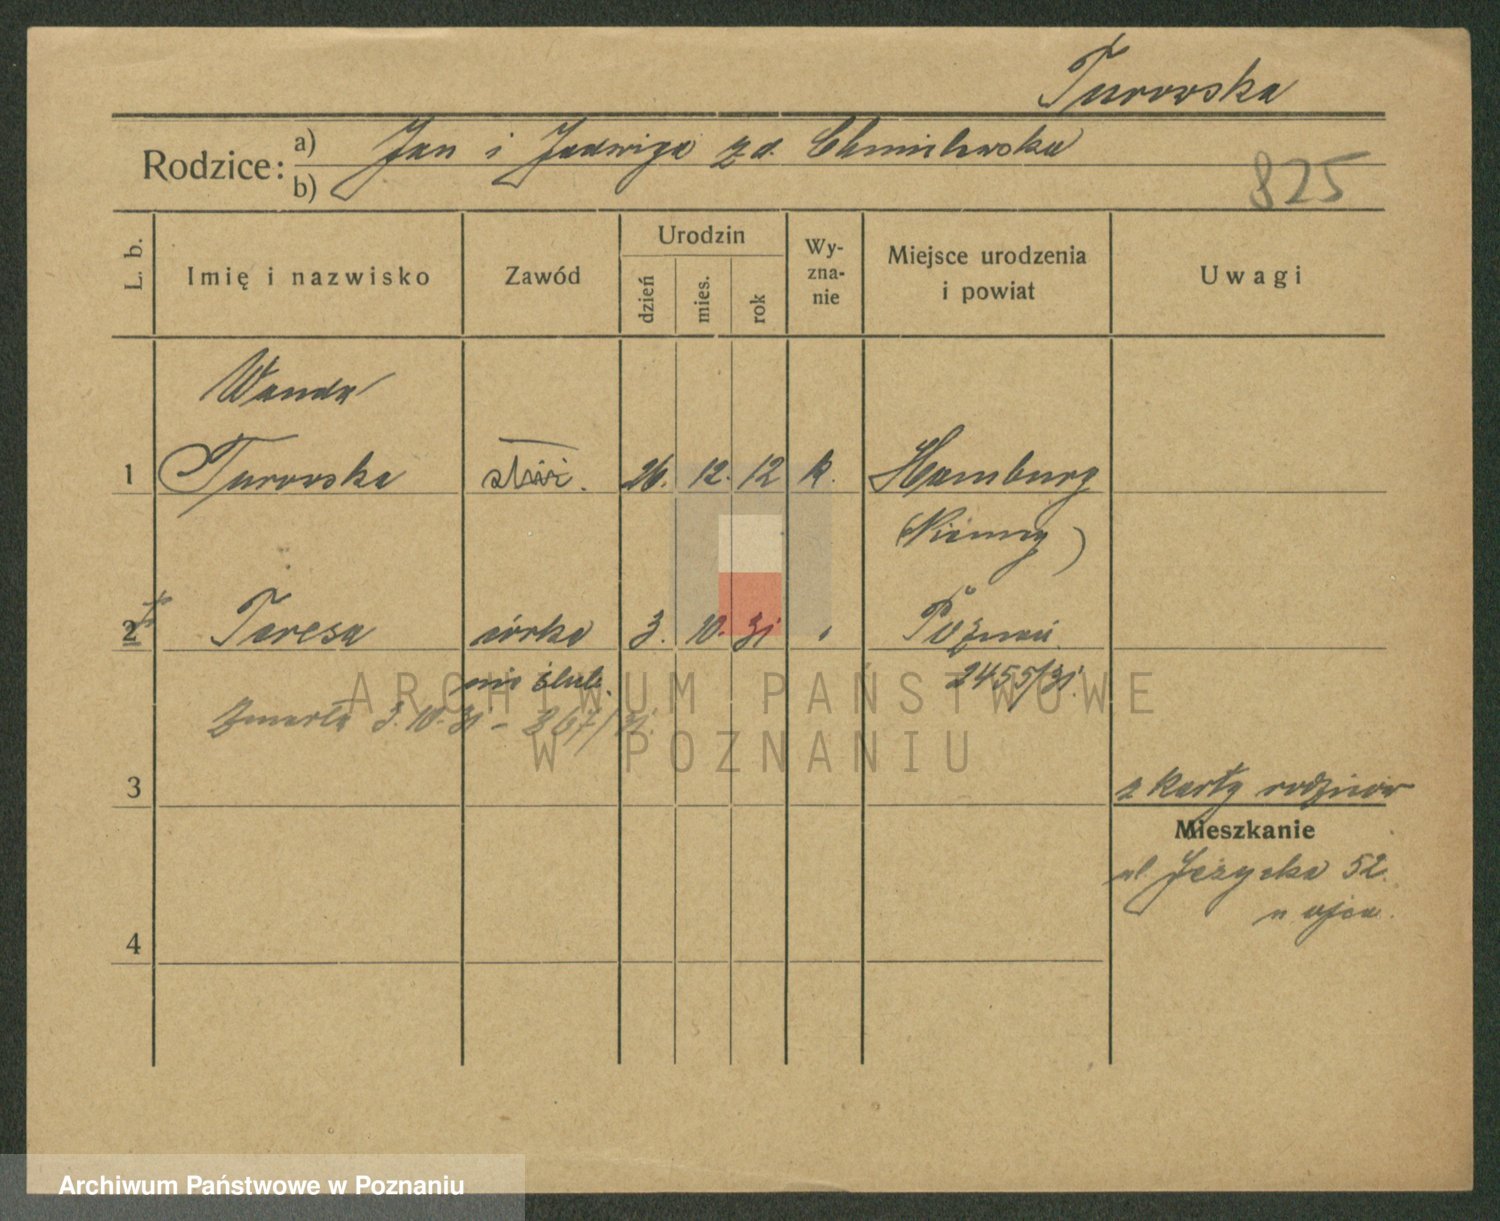 Turowska
Rodzice:
a) Jan i Jadwiga zd. Chmielewska
b)
825
L. b.
Imię i nazwisko
Zawód
Urodzin
dzień
mies.
rok
Wy-
zna-
nie
Miejsce urodzenia
i powiat
Uwagi
Wanda
1 Turowska 26. 12. 12 k. Hamburg
(Niemcy)
2 Teresa córka 3. 10. 31 Poznań
nie ślub. 2455/31.
Zmarła 3.10.31 - 867/31.
3
z karty rodziców
Mieszkanie
ul. Jeżycka 52.
u ojca.
4
ARCHIWUM PAŃSTWOWE
W POZNANIU
Archiwum Państwowe w Poznaniu